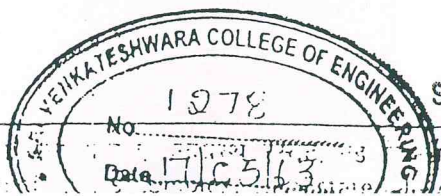 VENKATESHWARA COLLEGE OF ENGINEERING
No 1278
Date 17/05/13